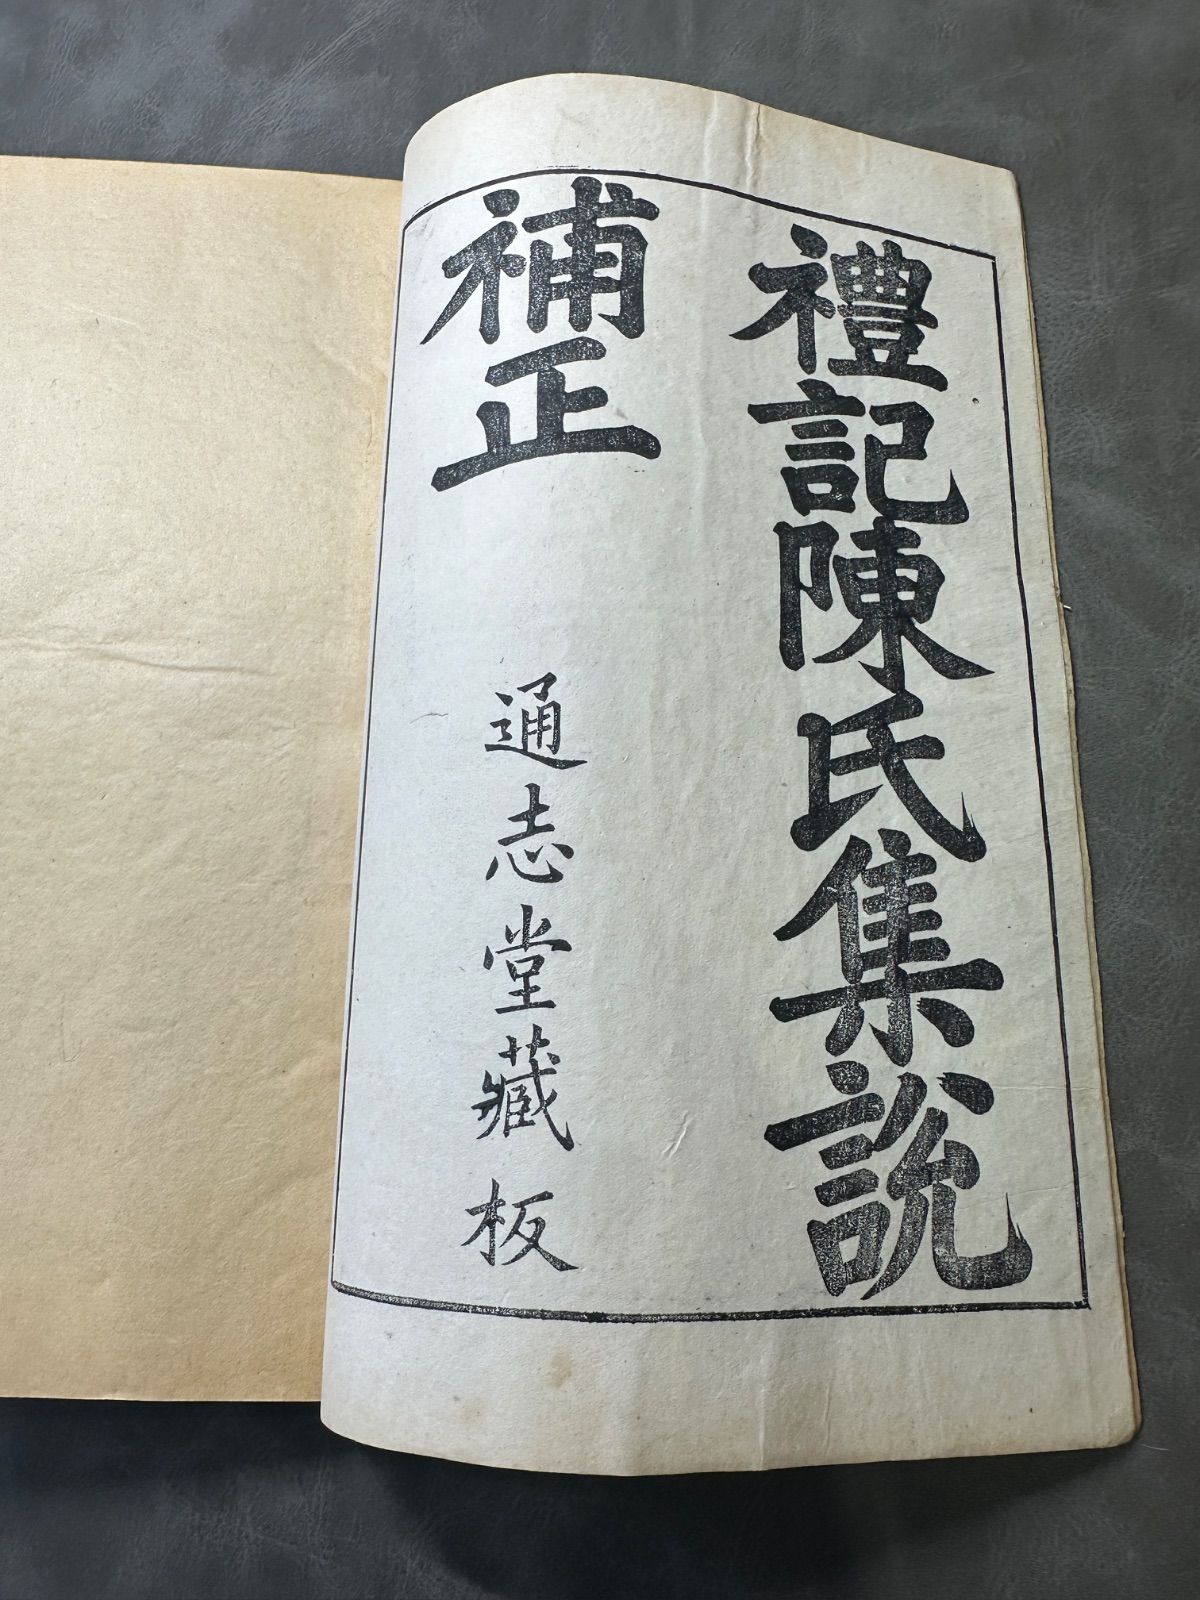 禮記陳氏集說
補正
通志堂藏板